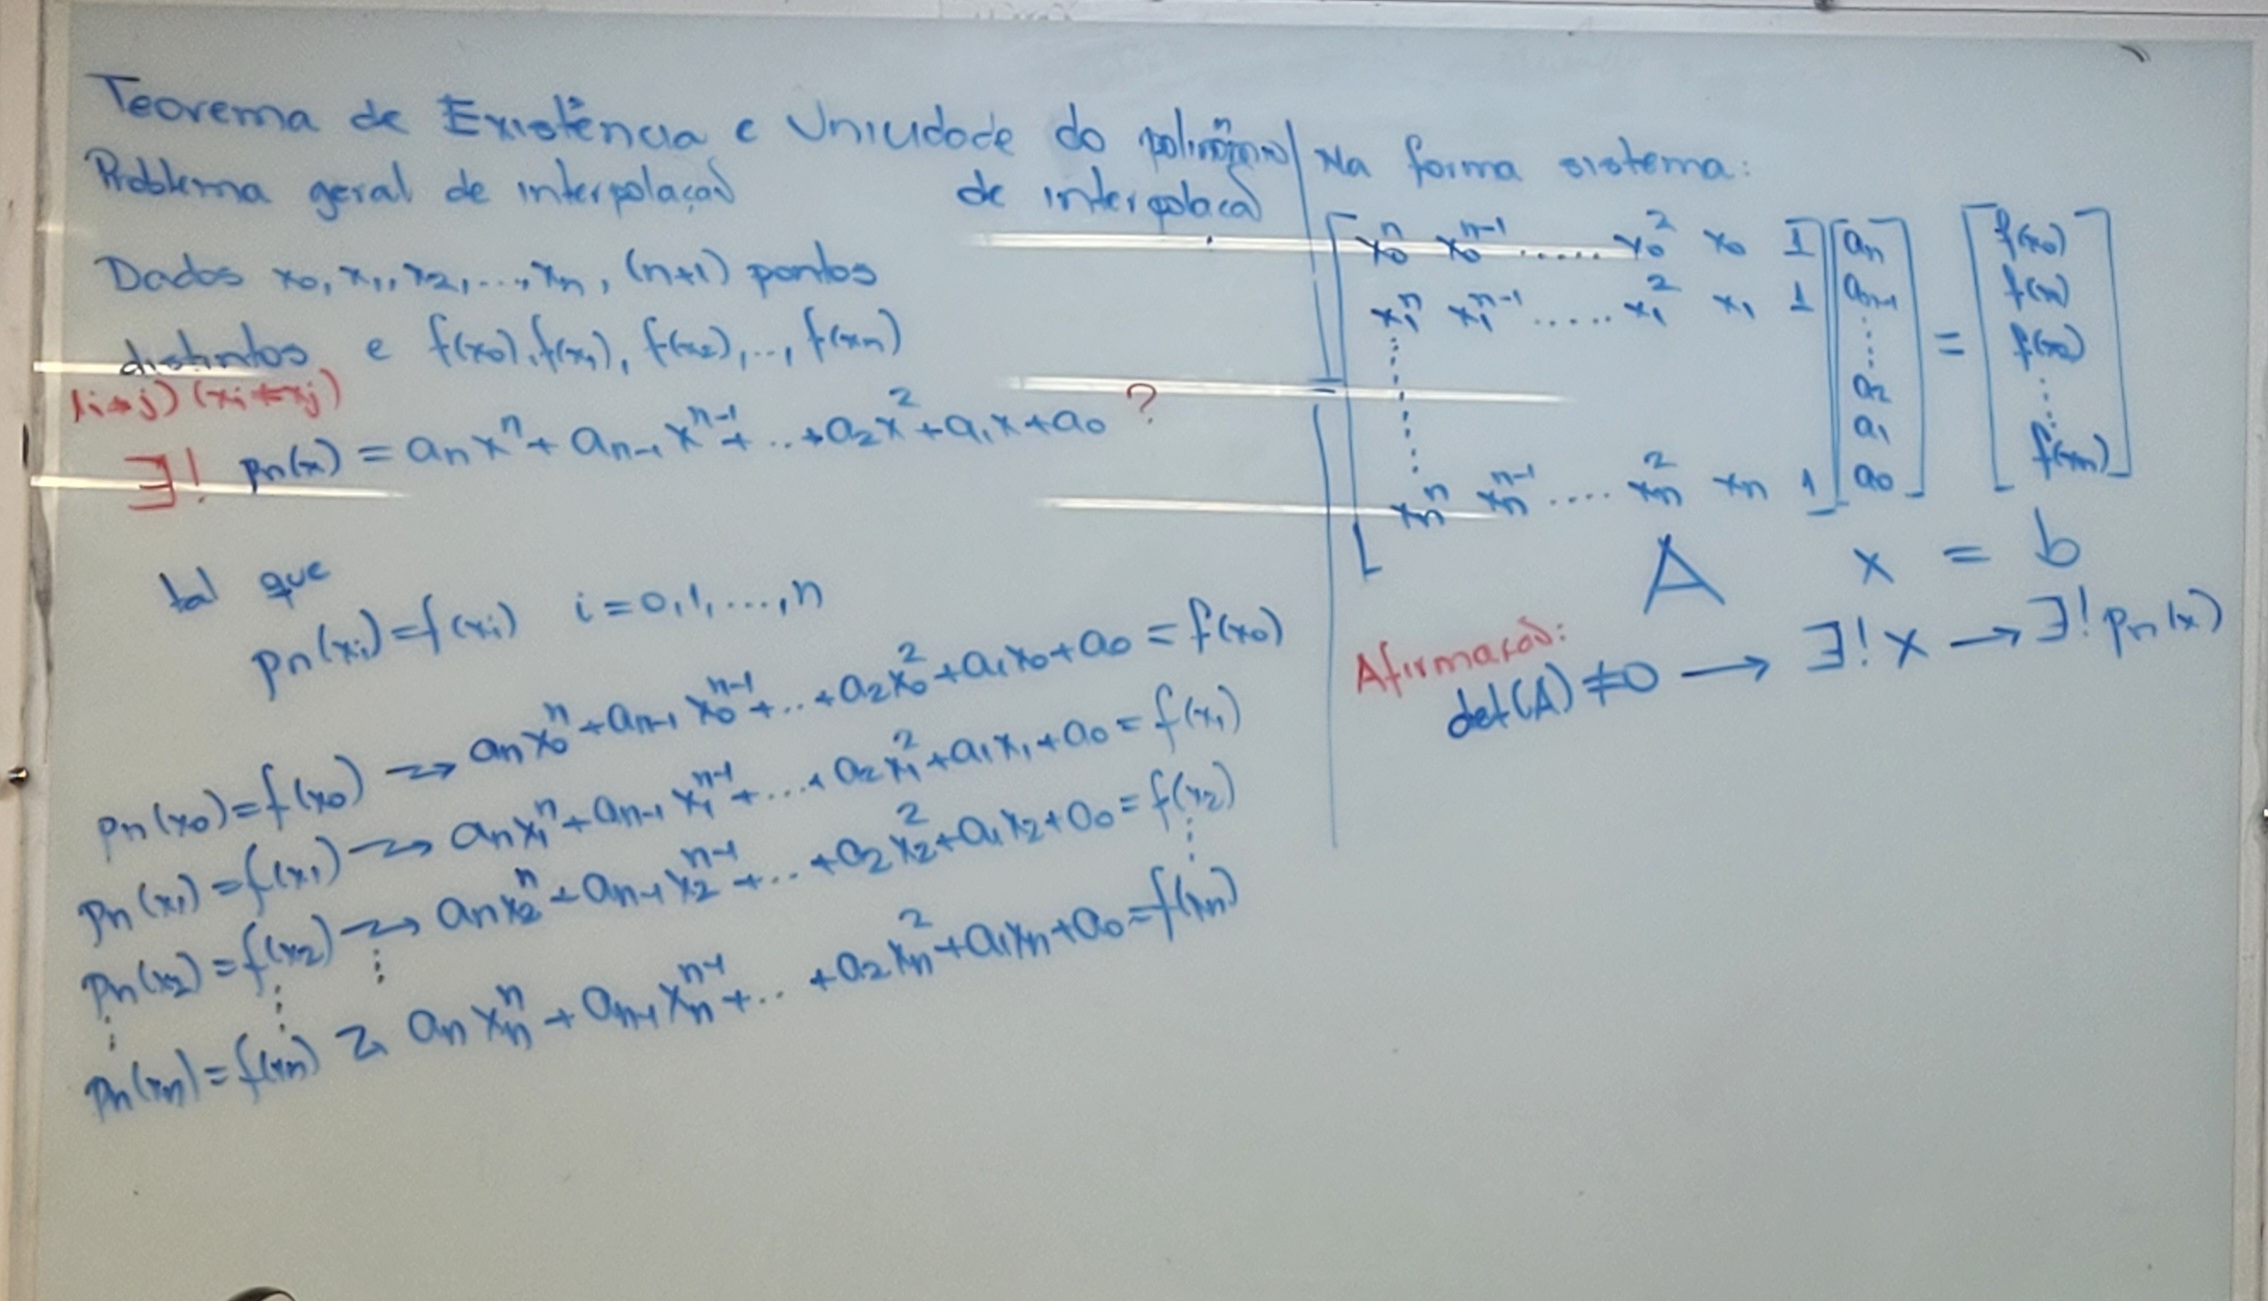 Teorema de Existência e Unicidade do polinômio
de interpolaçao
Problema geral de interpolação
Dados x₀, x₁, x₂, ..., xₙ, (n+1) pontos
distintos e f(x₀), f(x₁), f(x₂), ..., f(xₙ)
(i≠j) (xᵢ≠xⱼ)
∃! pₙ(x) = aₙxⁿ + aₙ₋₁xⁿ⁻¹ + ... + a₂x² + a₁x + a₀ ?
tal que
pₙ(xᵢ) = f(xᵢ) i = 0, 1, ..., n
pₙ(x₀) = f(x₀) → aₙx₀ⁿ + aₙ₋₁x₀ⁿ⁻¹ + ... + a₂x₀² + a₁x₀ + a₀ = f(x₀)
pₙ(x₁) = f(x₁) → aₙx₁ⁿ + aₙ₋₁x₁ⁿ⁻¹ + ... + a₂x₁² + a₁x₁ + a₀ = f(x₁)
pₙ(x₂) = f(x₂) → aₙx₂ⁿ + aₙ₋₁x₂ⁿ⁻¹ + ... + a₂x₂² + a₁x₂ + a₀ = f(x₂)
⋮ ⋮ ⋮ ⋮
pₙ(xₙ) = f(xₙ) → aₙxₙⁿ + aₙ₋₁xₙⁿ⁻¹ + ... + a₂xₙ² + a₁xₙ + a₀ = f(xₙ)
Na forma sistema:
[ x₀ⁿ x₀ⁿ⁻¹ ..... x₀² x₀ 1 ] [ aₙ ] [ f(x₀) ]
x₁ⁿ x₁ⁿ⁻¹ ..... x₁² x₁ 1 aₙ₋₁ f(x₁)
⋮ ⋮ = f(x₂)
a₂ ⋮
a₁
xₙⁿ xₙⁿ⁻¹ .... xₙ² xₙ 1 a₀ f(xₙ)
A x = b
Afirmação:
det(A) ≠ 0 → ∃! x → ∃! pₙ(x)